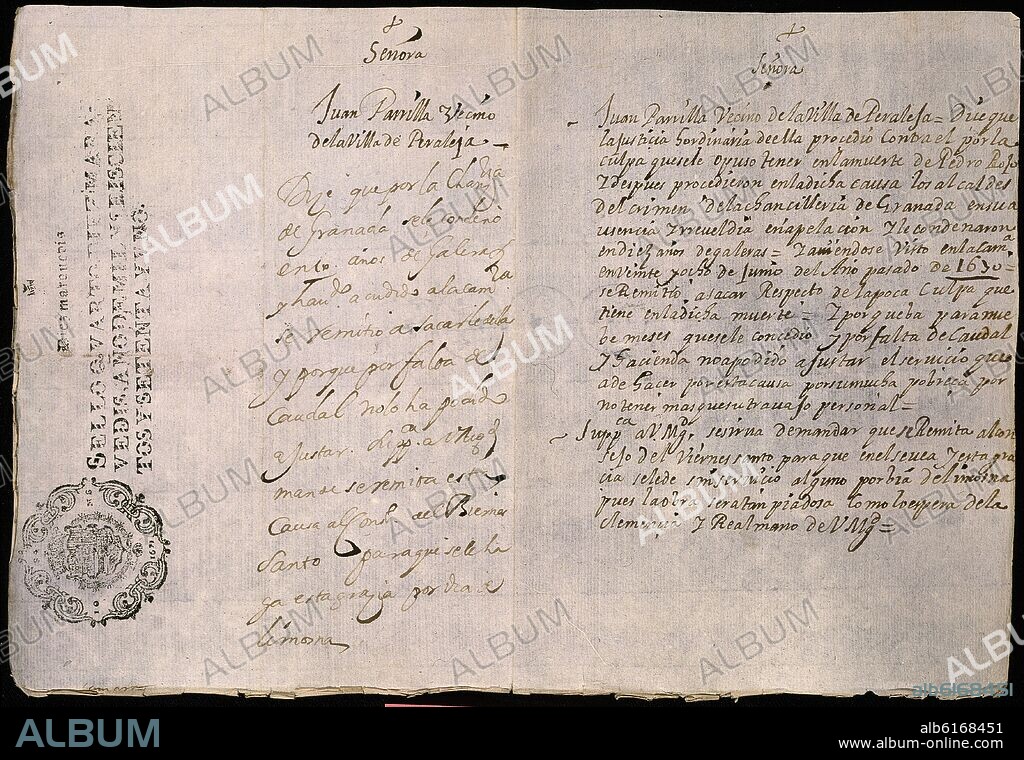 Diez marauedis
SELLO QVARTO, DIEZ MARA-
VEDIS, AÑO DE MIL Y SEISCIEN-
TOS Y SETENTA Y VNO.
Señora
Juan Parrilla Vecino
de la Villa de Peraleja =
Dize que por la Chan.ria
de Granada se le condeno
en años de Galeras
y hau.do acudido a la cam.ra
se remitio a sacar
y porque por falta de
Caudal no lo ha podido
ajustar. Supp.ca a V Mg.d
mande se remita esta
Causa al Cons.o del Viernes
Santo para que se le ha
ga esta grazia por via de
limosna
Señora
Juan Parrilla Vecino de la Villa de Peraleja = Dice que
la Justicia hordinaria de ella procedió Contra el por la
culpa que se le opuso tener en la muerte de Pedro Rojo
Y despues procedieron en la dicha causa los alcaldes
del crimen de la chancilleria de Granada en su a
usencia Y rreveldia en apelacion Y le condenaron
en diez años de galeras = Y auiendose Visto en la cam.a
en Veinte y ocho de Junio del Año pasado de 1670 =
se Remitio a sacar Respecto de la poca Culpa que
tiene en la dicha muerte = Y porque ba para nue
be meses que se le concedio Y por falta de Caudal
Y hacienda no a podido ajustar el servicio que
a de hacer por esta causa por su mucha pobreça por
no tener mas que su travajo personal =
Supp.ca a V.Mg.d se sirva de mandar que se Remita al con
sejo del Viernes santo para que en el se vea Y esta gra
cia se le de sin servicio alguno por bia de limosna
pues la obra sera tan piadosa Como lo espera de la
clemencia Y Real mano de V Mg.d =
ALBUM
alb6168451
ALBUM
alb6168451
www.album-online.com